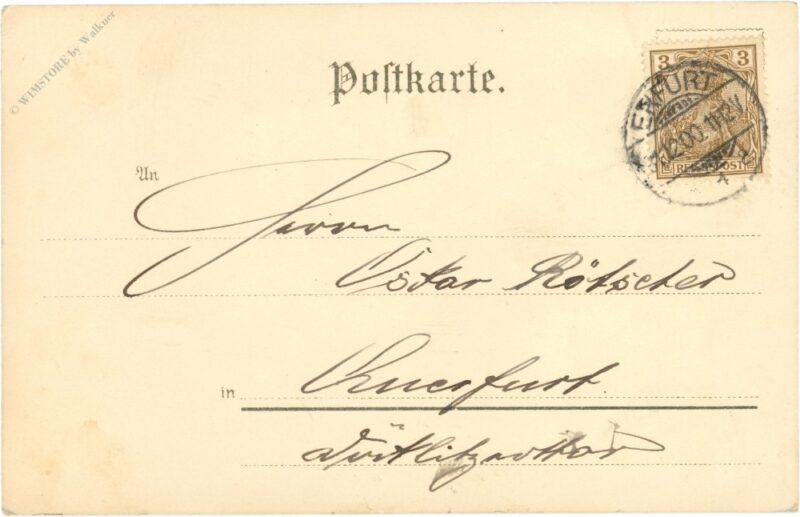 © WIMSTORE by Walkner
Postkarte.
3 3
ERFURT
12.00. 11-12V
REICHSPOST
An
Herrn
Oskar Rötscher
in Querfurt.